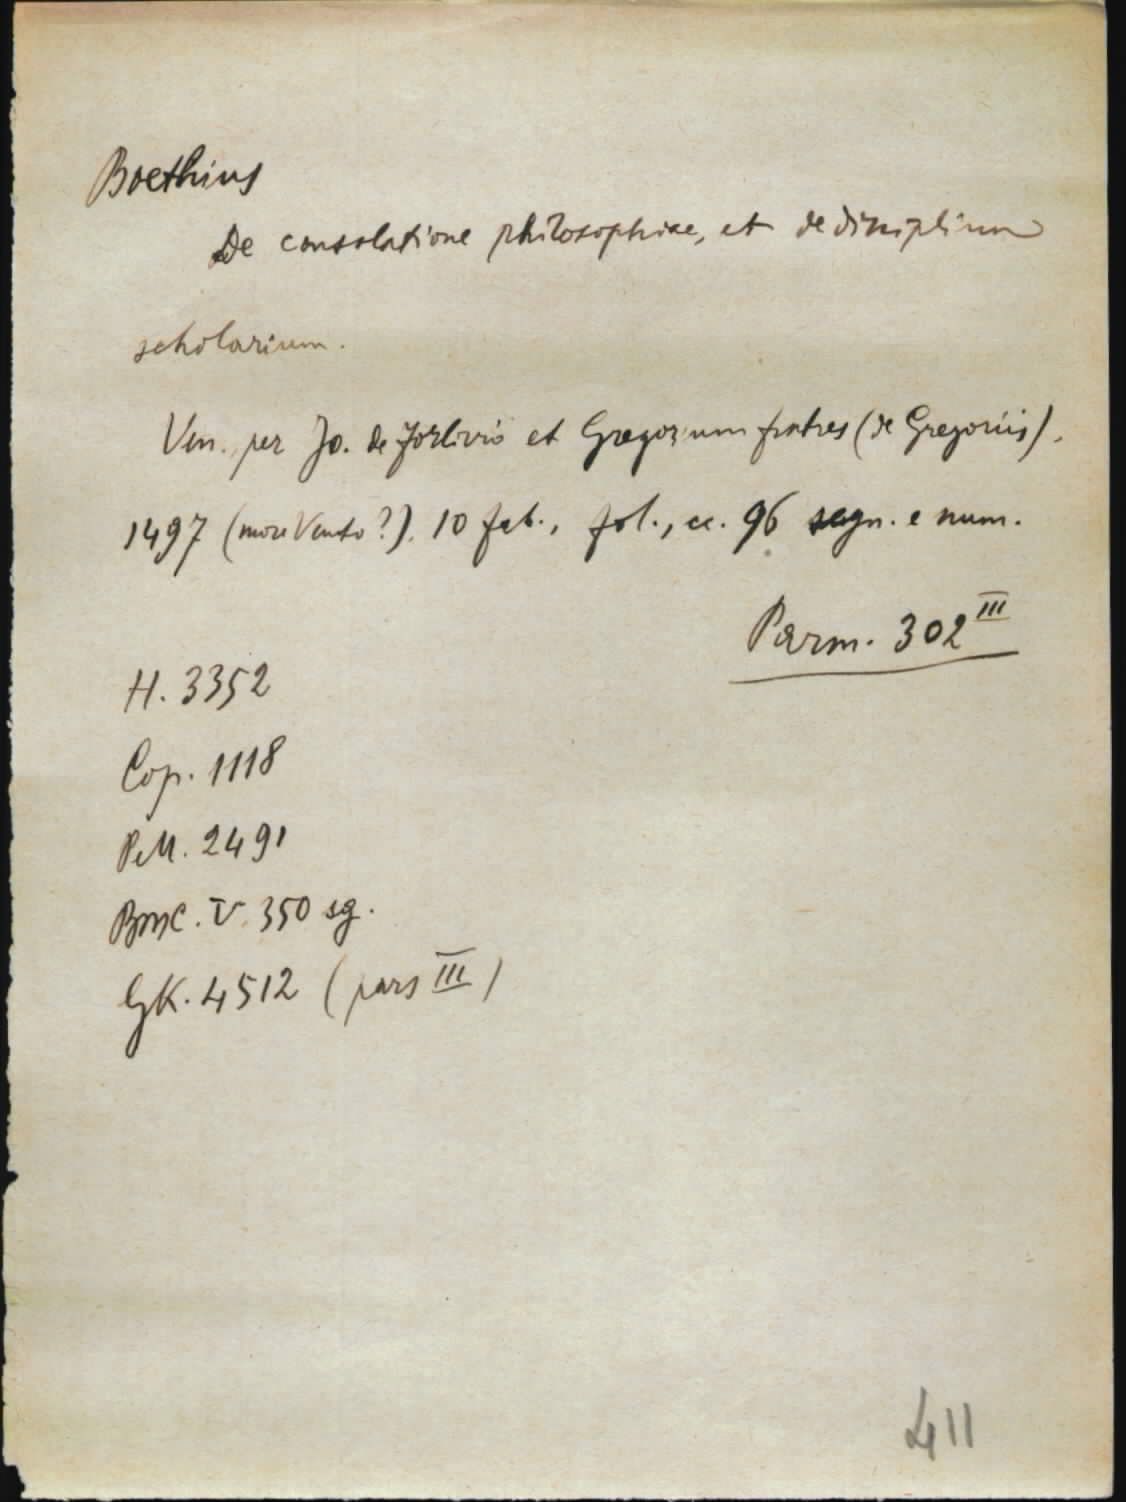 Boethius
De consolatione philosophiae, et de disciplina
scholarium.
Ven., per Jo. de Forlivio et Gregorium fratres (de Gregoriis),
1497 (more Veneto?), 10 feb., fol., cc. 96 segn. e num.
Parm. 302 III
H. 3352
Cop. 1118
Pell. 2491
BMC. V. 350 sg.
GK. 4512 (pars III)
411